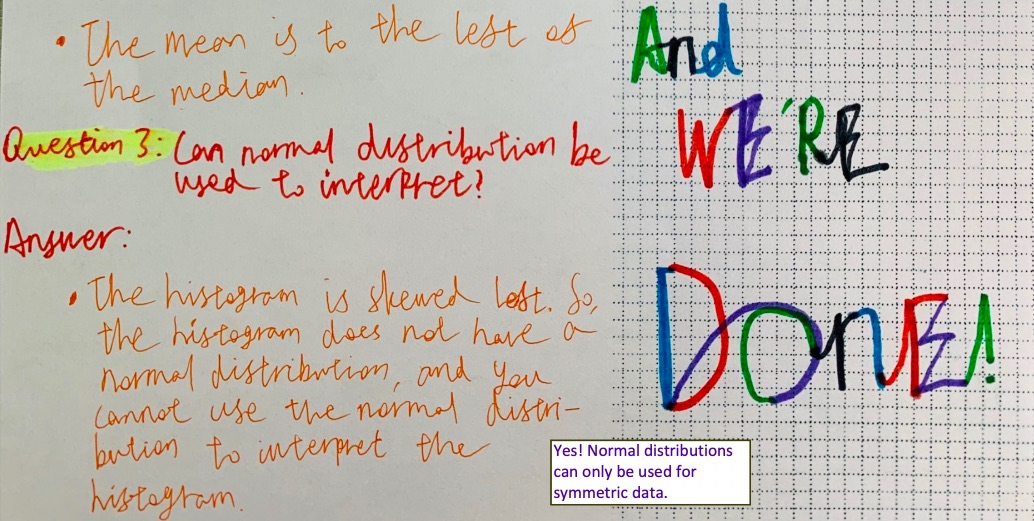 • The mean is to the left of
the median.
Question 3: Can normal distribution be
used to interpret?
Answer:
• The histogram is skewed left. So,
the histogram does not have a
normal distribution, and you
cannot use the normal distri-
bution to interpret the
histogram.
And
WE'RE
DonE!
Yes! Normal distributions
can only be used for
symmetric data.